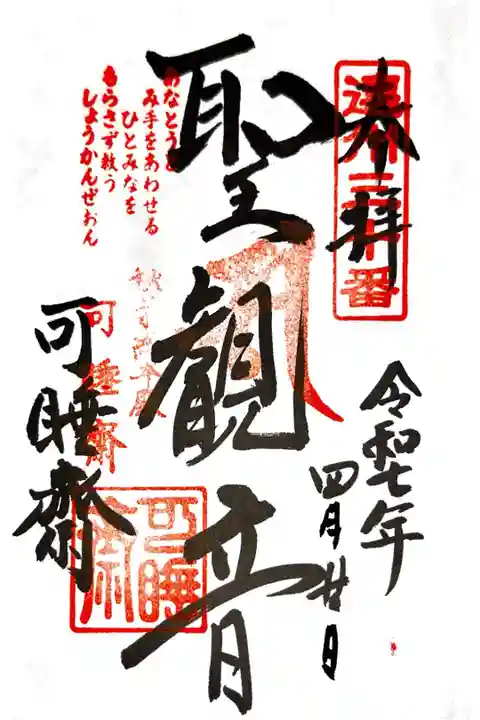 奉拝
令和七年
四月廿日
聖観音
み手をあわせる
ひとみなを
もらさず救う
しょうかんぜおん
可睡齋
可睡齋
可睡
齋